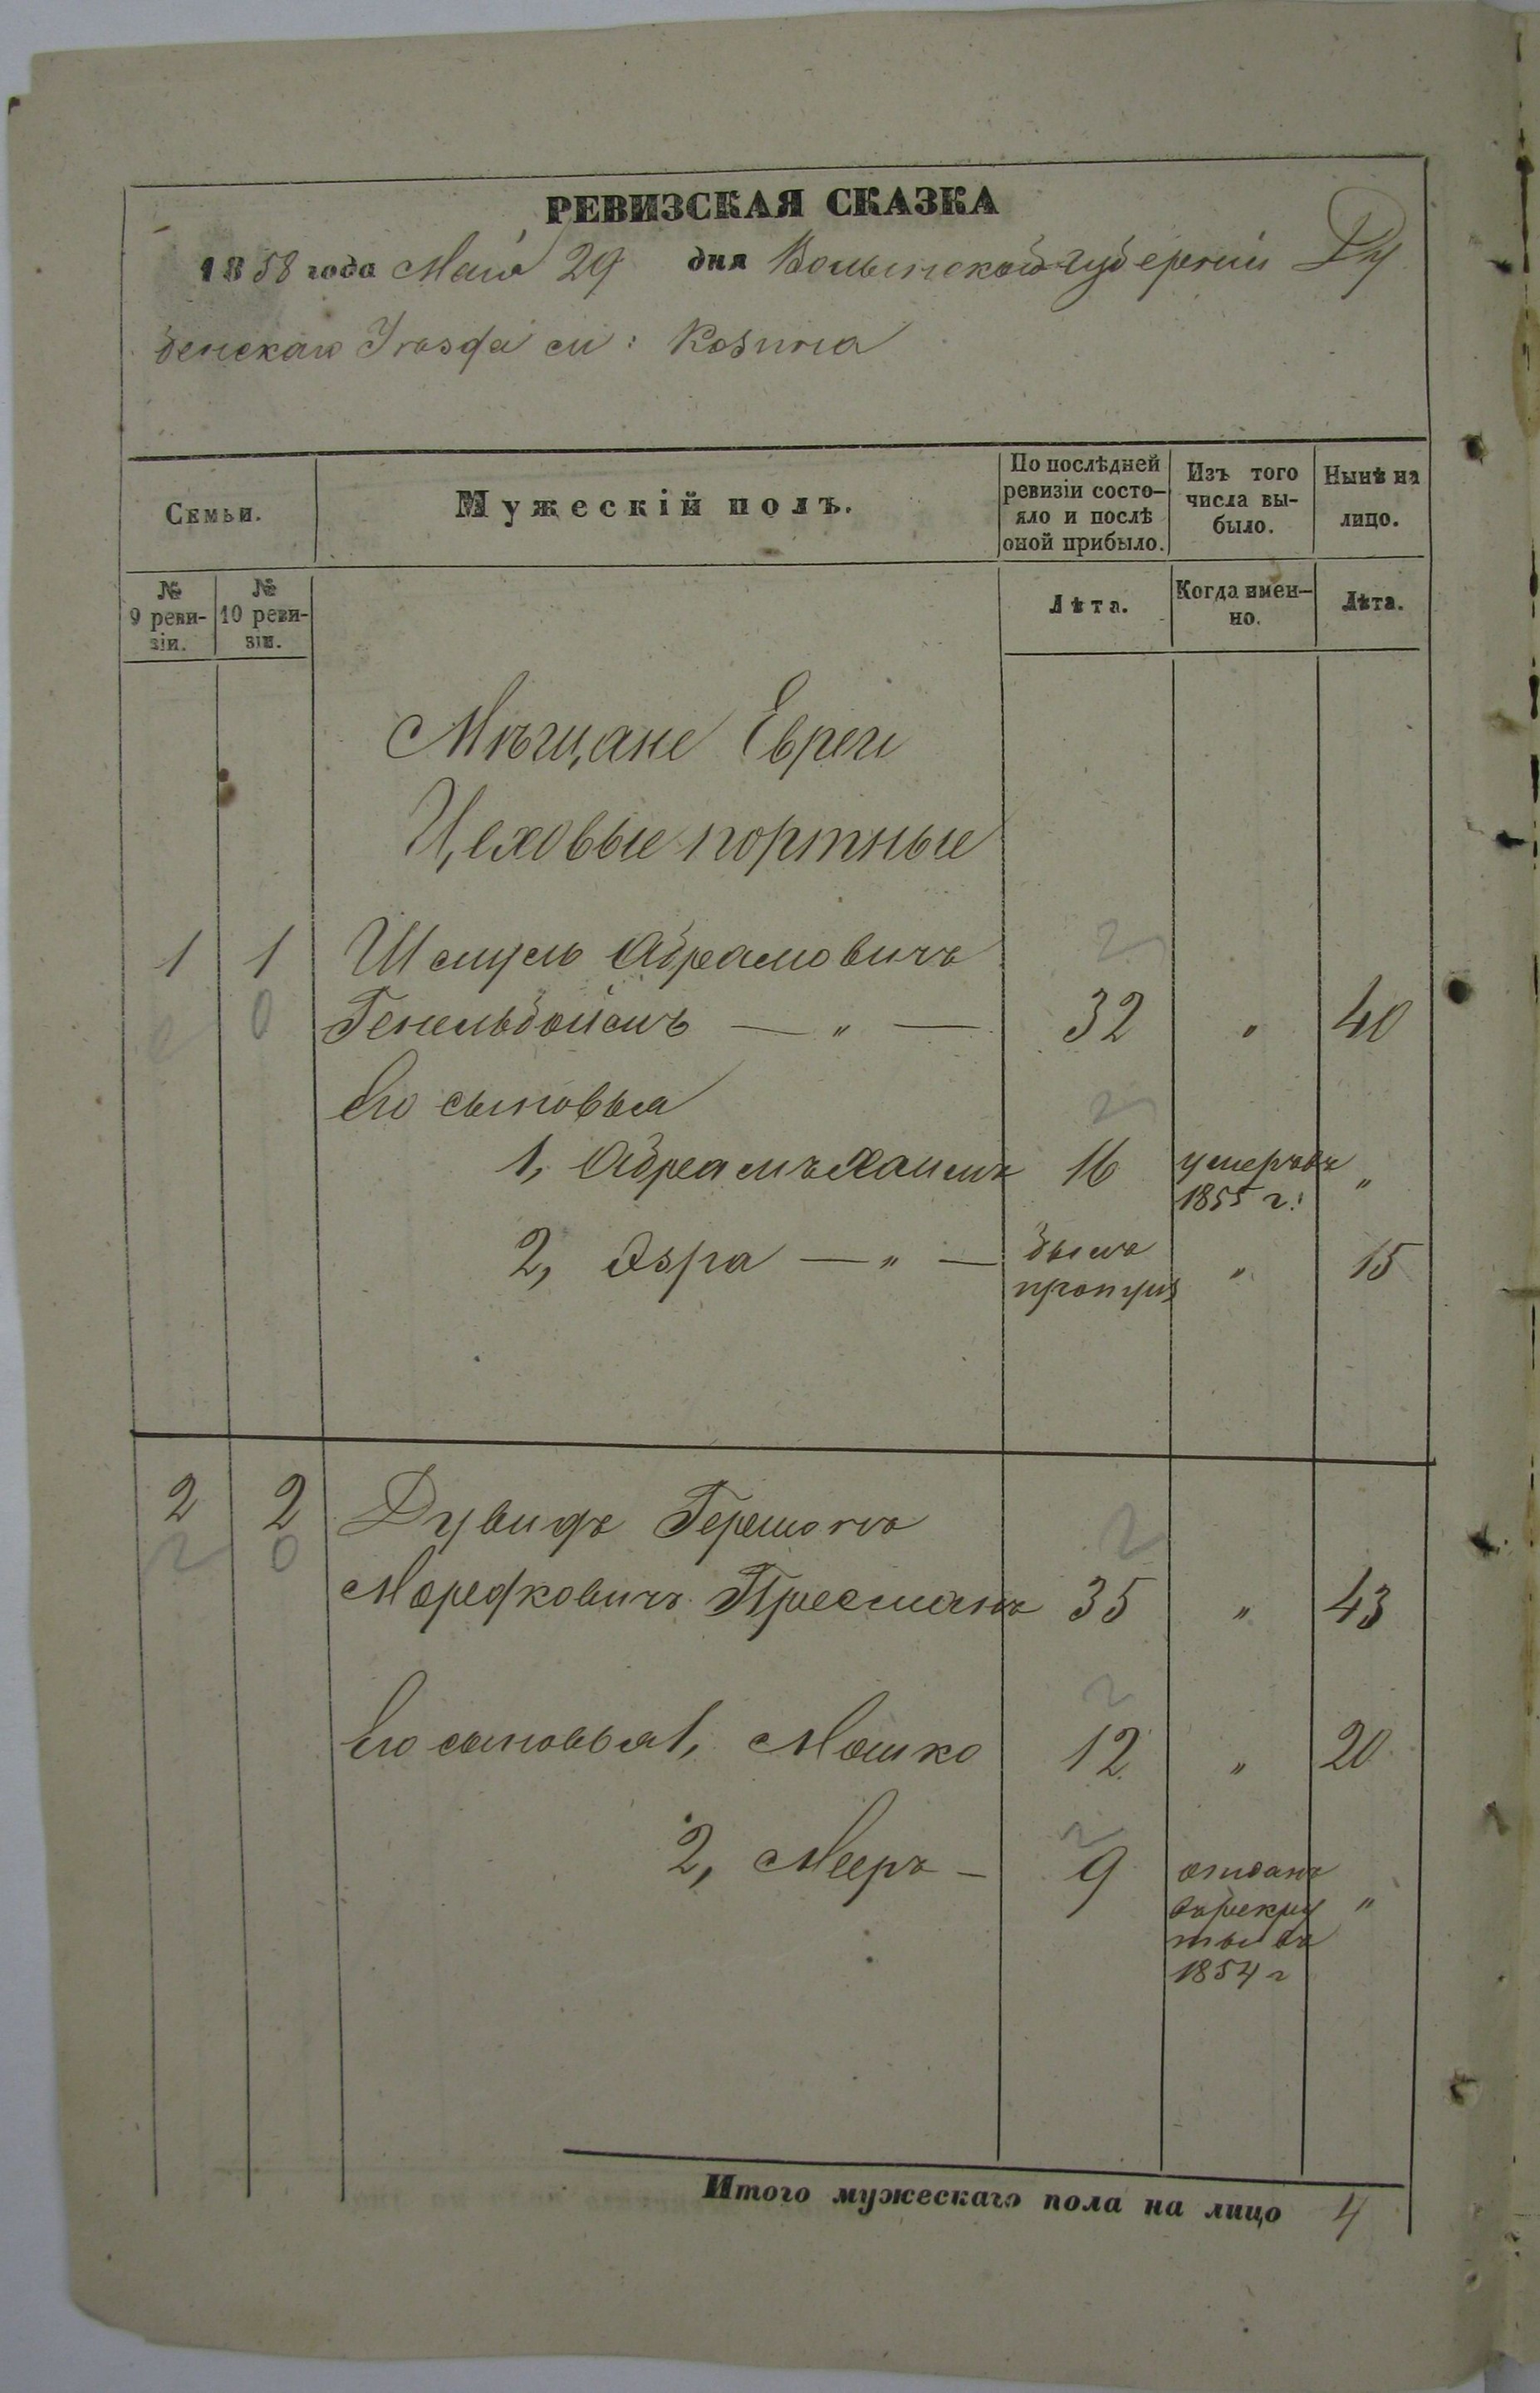 РЕВИЗСКАЯ СКАЗКА
1858 года Маія 29 дня Волынской губерніи Ду
бенскаго Уѣзда м: Козина
Семьи.
Мужескій полъ.
По послѣдней ревизіи состо-яло и послѣ оной прибыло.
Изъ того числа вы-было.
Нынѣ на лицо.
№ 9 реви-зіи.
№ 10 реви-зіи.
Лѣта.
Когда имен-но.
Лѣта.
Мѣщане Евреи
Цеховые портные
1 1 Шмуль Абрамовичъ
Генельбоймъ — " — 32 " 40
Его сыновья
1, Абрамъ Хаимъ 16 умеръ въ 1855 г: "
2, Эзра — " — былъ пропущ " 15
2 2 Дувидъ Гершонъ
Мордковичъ Пресманъ 35 " 43
Его сыновья 1, Мошко 12 " 20
2, Мееръ — 9 отданъ въ рекру ты въ 1854 г "
Итого мужескаго пола на лицо 4